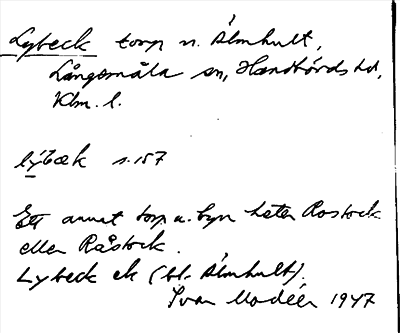 Lybeck torp u. Älmhult,
Långasmåla sn, Handbörds hd,
Klm. l.
lýbæk s. 157
Ett annat torp u. byn heter Rostock
eller Råstock.
Lybeck ek (bl. Älmhult).
Ivar Modéer 1947